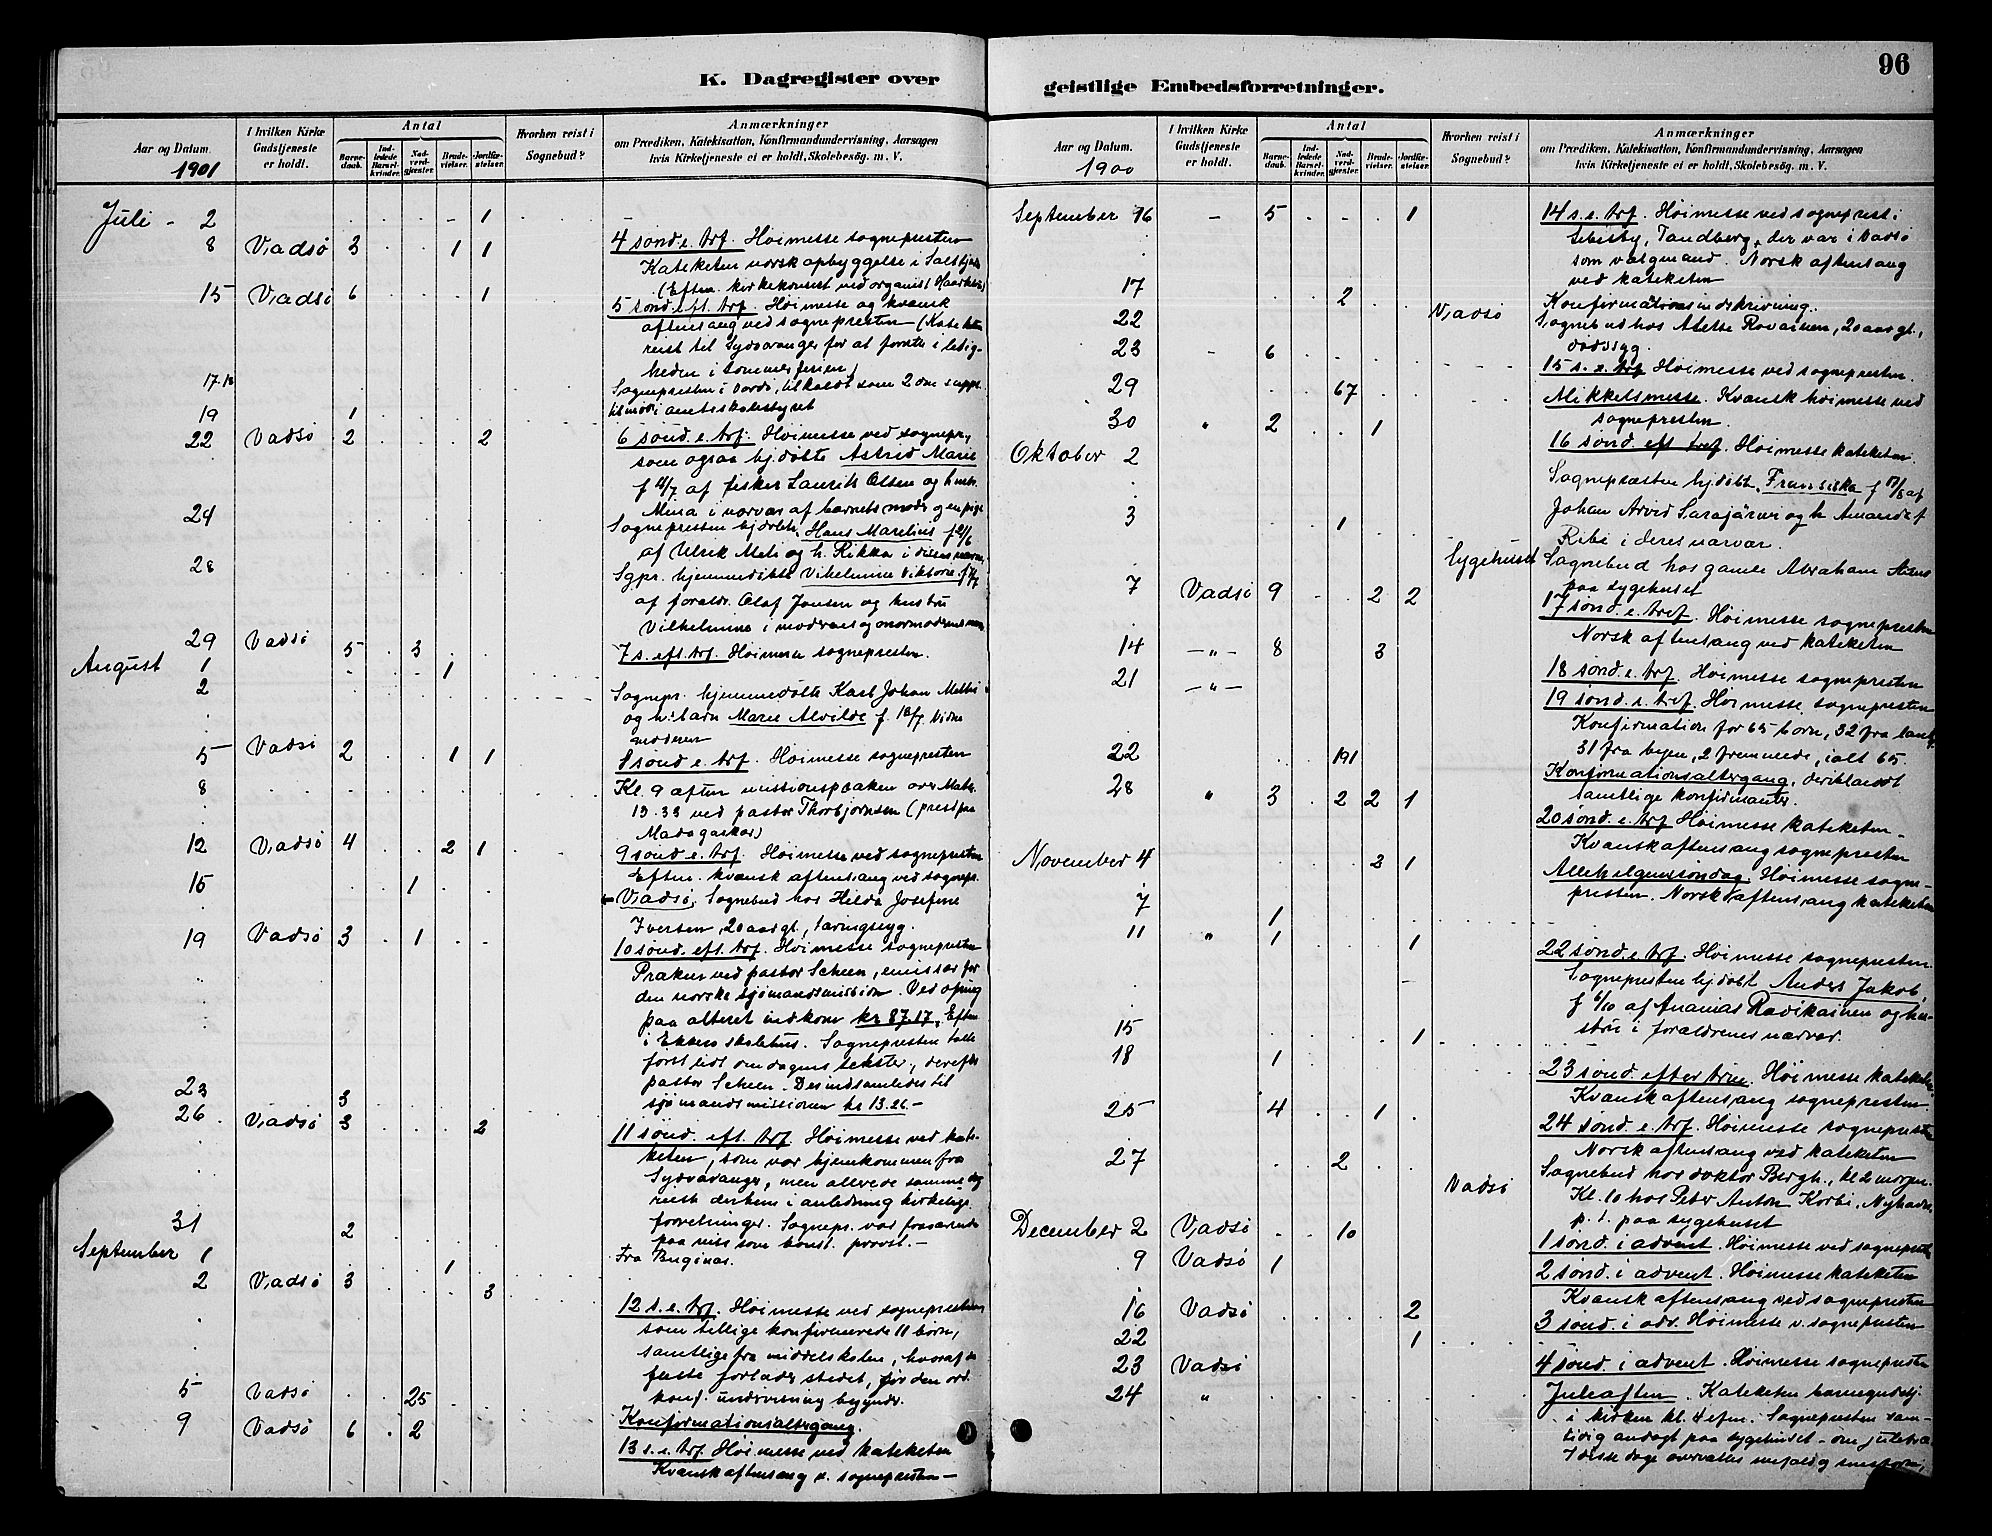 K. Dagregister over
Aar og Datum.
1901
I hvilken Kirke
Gudstjeneste
er holdt.
Antal
Barne-
daab.
Ind-
ledede
Barsel-
kvinder.
Nad-
verd-
gjæster.
Brude-
vielser.
Jordfæ-
stelser.
Hvorhen reist i
Sognebud?
Anmærkninger
om Prædiken, Katekisation, Konfirmandundervisning, Aarsagen
hvis Kirketjeneste ei er holdt, Skolebesøg. m. V.
Juli - 2 1
8 Vadsø 3 1 1 4 sønd. e. trf. Høimesse sognepresten
Kateketen norsk opbyggelse i
(Eftm. kirkekoncert ved organist
15 Vadsø 6 1 5 sønd. eft. trf. Høimesse og kvænsk
aftensang ved sognepresten (Kateketen
reist til Sydvaranger for at forrette i ledig-
heden i sommerferien)
17.18 Sognepresten i Vardø, tilkaldt som 2den suppl.
til møde i amtsskolestyret
19 1
22 Vadsø 2 2 6 sønd. e. trf. Høimesse ved sognepr.,
som ogsaa hjdøbte Astrid Marie
af fisker Laurits Olsen og hustr.
Mina i nærvær af barnets moder og en pige
24 Sognepresten hjdøbte Hans Marelius
af Ulrik Meli og h. Rikka i
28 Sgpr. hjemmedøbte Vilhelmine Viktoria
af forældr. Olaf Jensen og hustru
Vilhelmine i moderens og mormoderens
29 Vadsø 5 3 7 s. eft. trf. Høimesse sognepresten.
August 1 1
2 Sognepr. hjemmedøbte Karl Johan
og h.s barn Marie Alvilde f. 18/7
moderen
5 Vadsø 2 1 1 8 sønd e. trf. Høimesse sognepresten
8 Kl. 9 aften missionspræken over Math.
13.33 ved pastor Thorbjørnsen (prest paa
Madagaskar)
12 Vadsø 4 2 1 9 sønd e. trf. Høimesse ved sognepresten
Eftm. kvænsk aftensang ved sognepr.
15 1 Vadsø, Sognebud hos Hilda Josefine
Iversen, 20 aar gl., tæringssyg.
19 Vadsø 3 1 10 sønd. eft. trf. Høimesse sognepresten
Præken ved pastor Scheen, emissær for
den norske sjømandsmission. Ved ofring
paa alteret indkom kr 87.17. Eftm
i Ekkerø skolehus. Sognepresten talte
først lidt om dagens tekster, derefter
pastor Scheen. Der indsamledes til
sjømandsmissionen kr 13.26 -
23 3
26 Vadsø 3 2 11 sønd. eft. trf. Høimesse ved kate-
keten, som var hjemkommen fra
Sydvaranger, men allerede samme dag
reiste derhen i anledning kirkelige
forretninger. Sognepr. var fraværende
paa reise som konst. provst. -
31 2 Fra Bugønæs.
September 1 1
2 Vadsø 3 3 12 s. e. trf. Høimesse ved sognepresten
som tillige konfirmerede 11 børn,
samtlige fra middelskolen, hvoraf de
fleste forlader stedet, før den ord.
konf. undervisning begynder.
5 Vadsø 25 Konfirmationsaltergang.
9 Vadsø 6 2 13 s. e. trf. Høimesse ved kateketen
Kvænsk aftensang v. sognepresten -
geistlige Embedsforretninger.
96
Aar og Datum.
1900
I hvilken Kirke
Gudstjeneste
er holdt.
Antal
Barne-
daab.
Ind-
ledede
Barsel-
kvinder.
Nad-
verd-
gjæster.
Brude-
vielser.
Jordfæ-
stelser.
Hvorhen reist i
Sognebud?
Anmærkninger
om Prædiken, Katekisation, Konfirmandundervisning, Aarsagen
hvis Kirketjeneste ei er holdt, Skolebesøg. m. V.
September 16 - 5 1 14 s. e. trf. Høimesse ved sogneprest i
Lebesby, Tandberg, der var i Vadsø
som valgmand. Norsk aftensang
ved kateketen
17 2 Konfirmationsindskrivning.
22 Vadsø Sognebud hos Rovainen, 20 aar gl.,
dødssyg.
23 - 6 15 s. e. trf Høimesse ved sognepresten.
29 67 Mikkelsmesse. Kvænsk høimesse ved
sognepresten.
30 " 2 1 16 sønd. eft tref. Høimesse kateketen.
Oktober 2 Sognepresten hjdøbt. Fransiska
Johan Arvid Sarajärvi og h. Amanda f
Ribi i deres nærvær.
3 1 Sygehuset Sognebud hos gamle Abraham
paa sygehuset
7 Vadsø 9 2 2 17 sønd. e. tref. Høimesse sognepresten
Norsk aftensang ved kateketen
14 -"- 8 3 18 sønd. e. trf. Høimesse sognepresten
21 -"- 19 sønd. e. tref. Høimesse sognepresten
Konfirmation for 65 børn, 32 fra landet,
31 fra byen, 2 fremmede, ialt 65
22 191 Konfirmationsaltergang, deriblandt
samtlige konfirmanter.
28 " 3 2 2 1 20 sønd. e. trf Høimesse kateketen -
Kvænsk aftensang sognepresten
November 4 3 1 Allehelgensøndag. Høimesse sogne-
presten. Norsk aftensang kateketen
7 1
11 " 1 1 22 sønd. e. trf. Høimesse sognepresten.
Sognepresten hjdøbt Anders Jakob,
f 6/10 af Ananias Radikainen og hu-
stru i forældrenes nærvær.
15 1
18 1 23 sønd. efter trin. Høimesse kateketen
Kvænsk aftensang sognepresten.
25 4 1 24 sønd. e. trf. Høimesse sognepresten
Norsk aftensang ved kateketen
27 2 Vadsø Sognebud hos doktor Bergh., kl 2 morgen.
Kl. 10 hos Peter Anton Korbi,
p. t. paa sygehuset
December 2 Vadsø 10 1 sønd. i advent. Høimesse ved sognepresten
9 Vadsø 1 2 sønd. i advent. Høimesse kateketen
Kvænsk aftensang ved sognepresten
16 Vadsø 2 3 sønd. i adv. Høimesse v. sognepresten
22 1
23 Vadsø 4 sønd. i advent. Høimesse sognepresten
24 " Juleaften. Kateketen barnegudstj.
i kirken kl. 4 efm. Sognepresten sam-
tidig andagt paa sygehuset - om
I disse dage